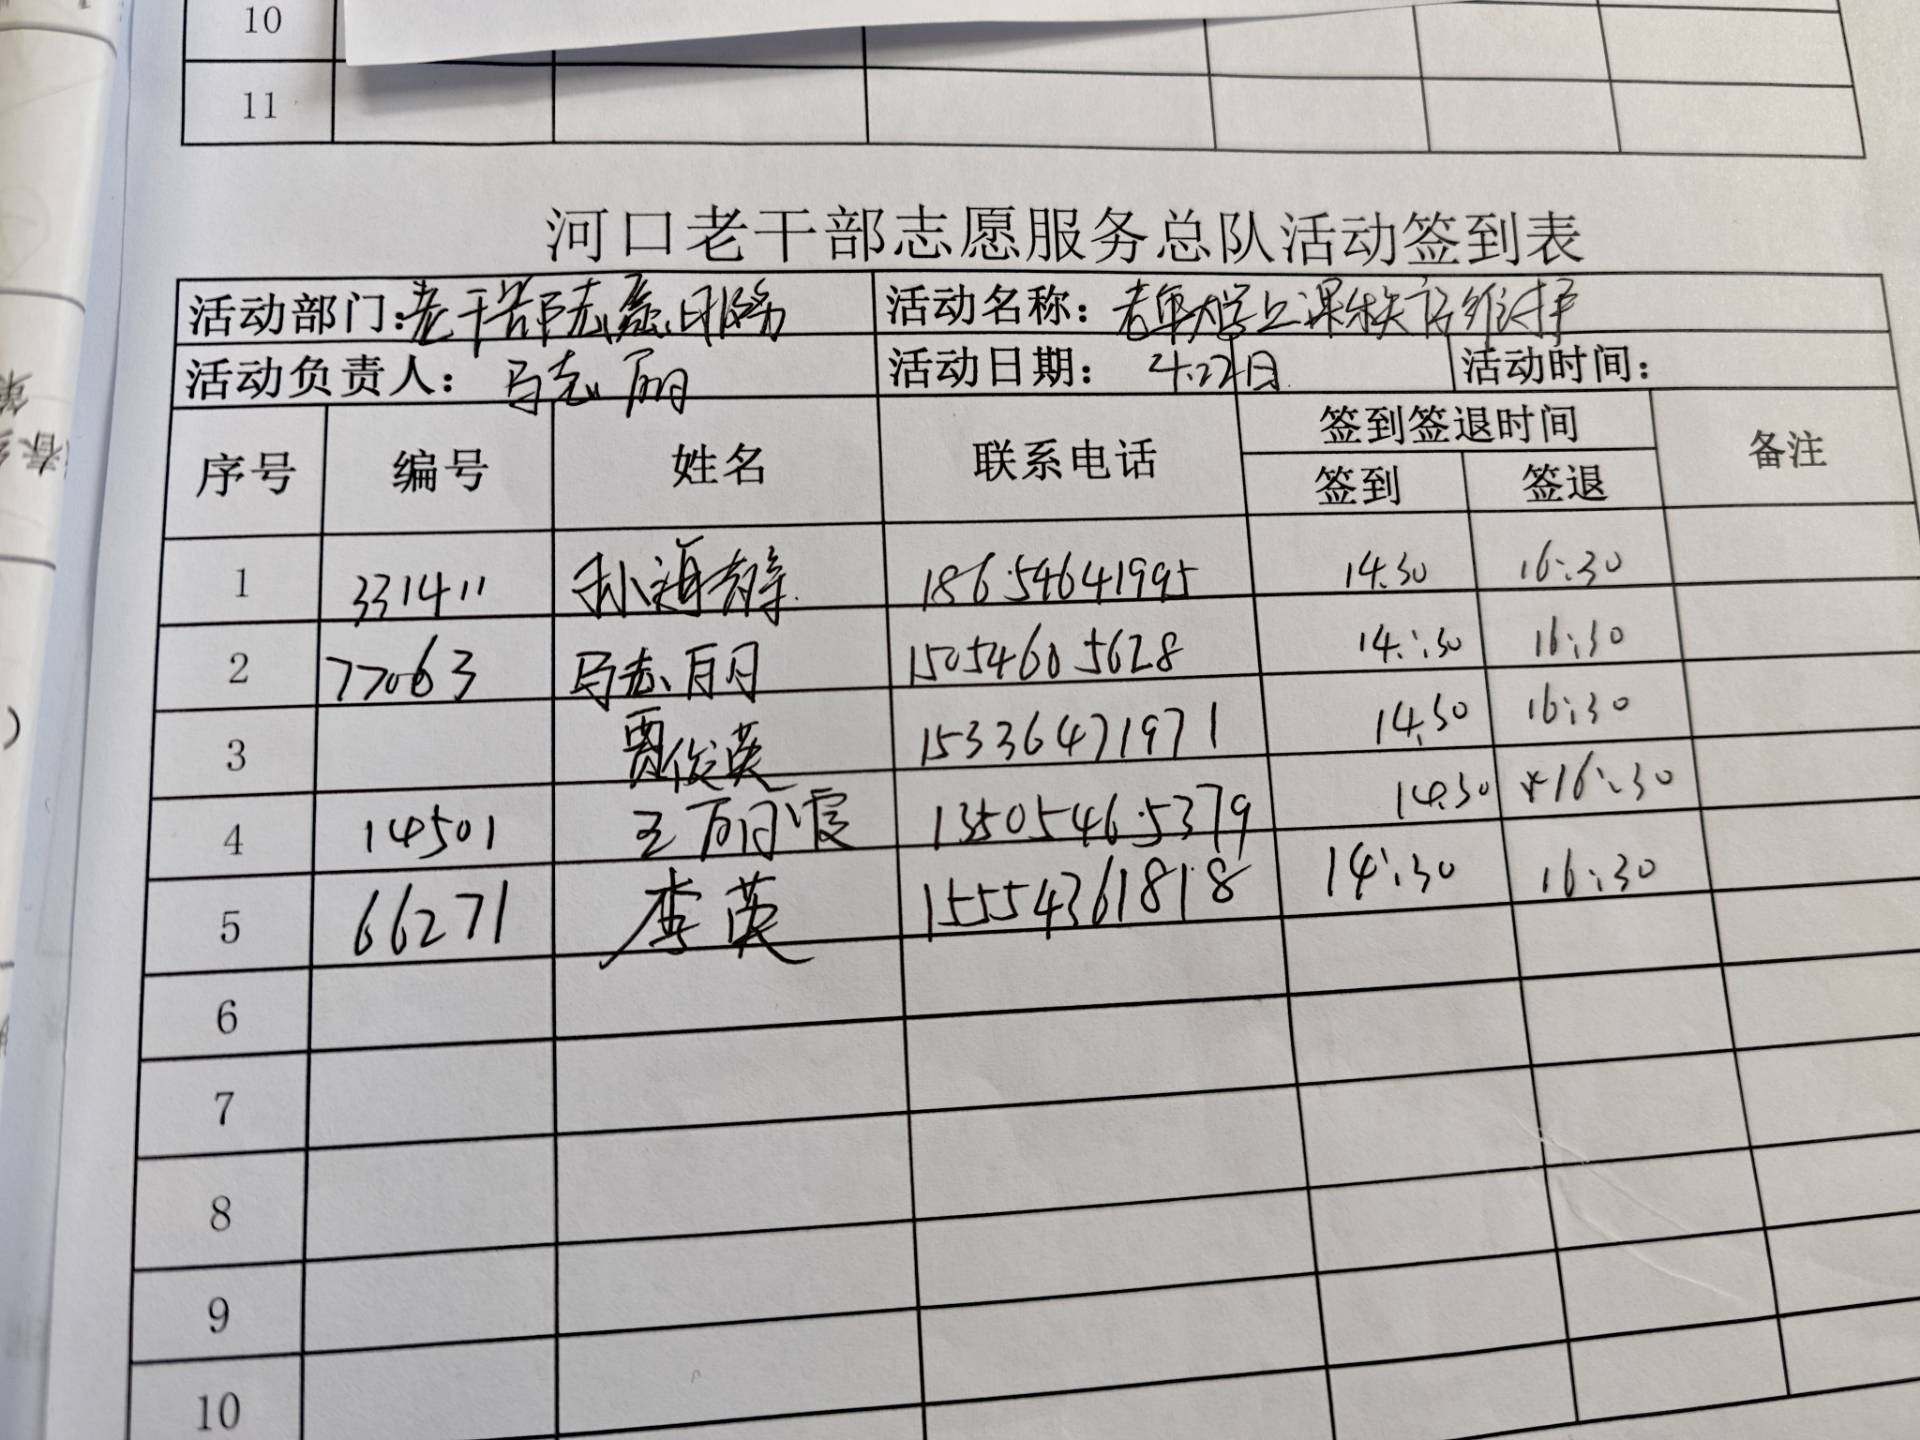 10
11
河口老干部志愿服务总队活动签到表
活动部门:老干部志愿服务 活动名称: 老年大学上课秩序维护
活动负责人: 马志丽 活动日期: 4.22日 活动时间:
序号 编号 姓名 联系电话 签到签退时间 备注
签到 签退
1 331411 孙海静 18654641995 14:30 16:30
2 77063 马志丽 15054605628 14:30 16:30
3 贾俊英 15336471971 14:30 16:30
4 14501 王丽霞 13505465379 14:30 16:30
5 66271 李英 15554361818 14:30 16:30
6
7
8
9
10